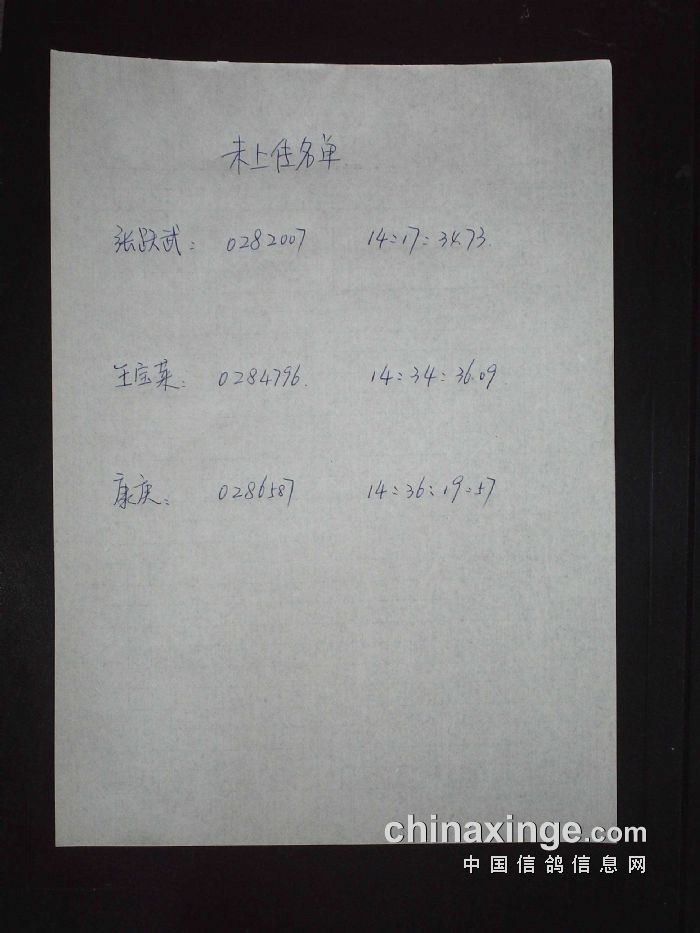 未上传名单
张跃武: 0282007 14:17:34.73
王宝英: 0284796. 14:34:36.09
康庚: 0286587 14:36:19:57
chinaxinge.com
中国信鸽信息网